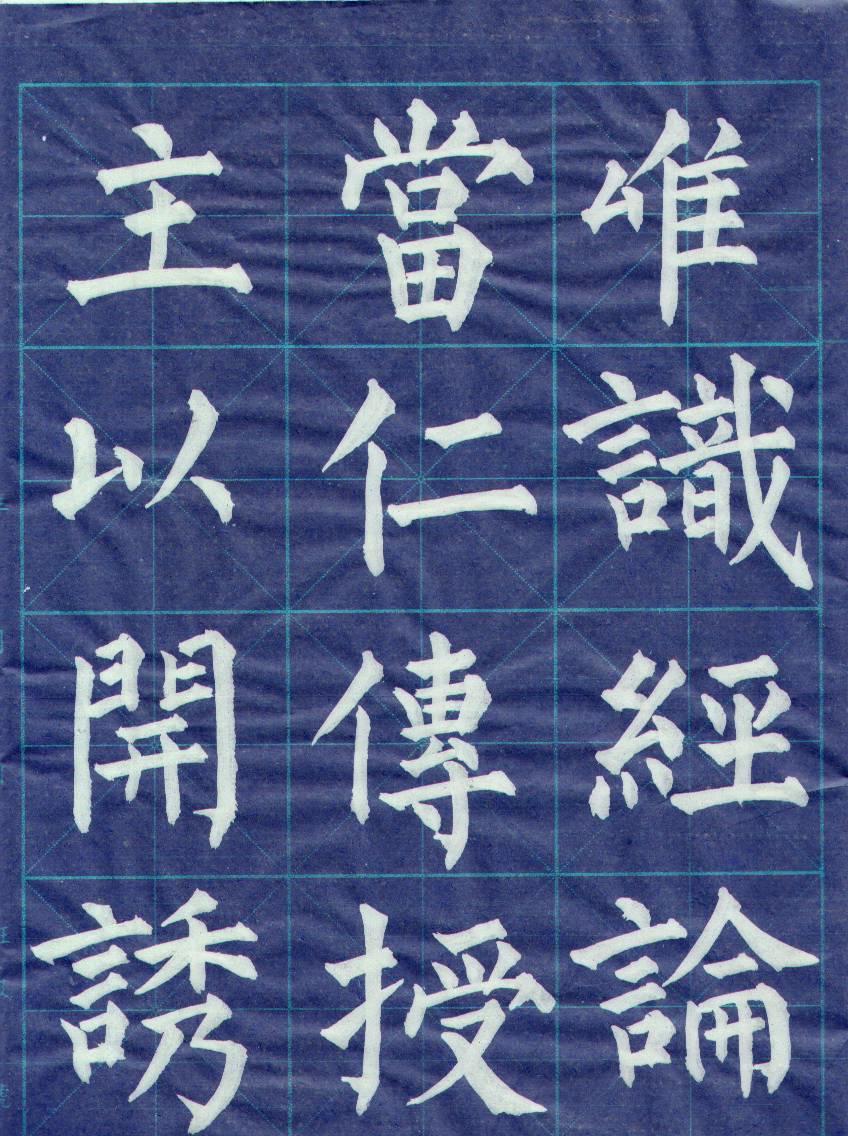 唯識經論
當仁傳授
主以開誘